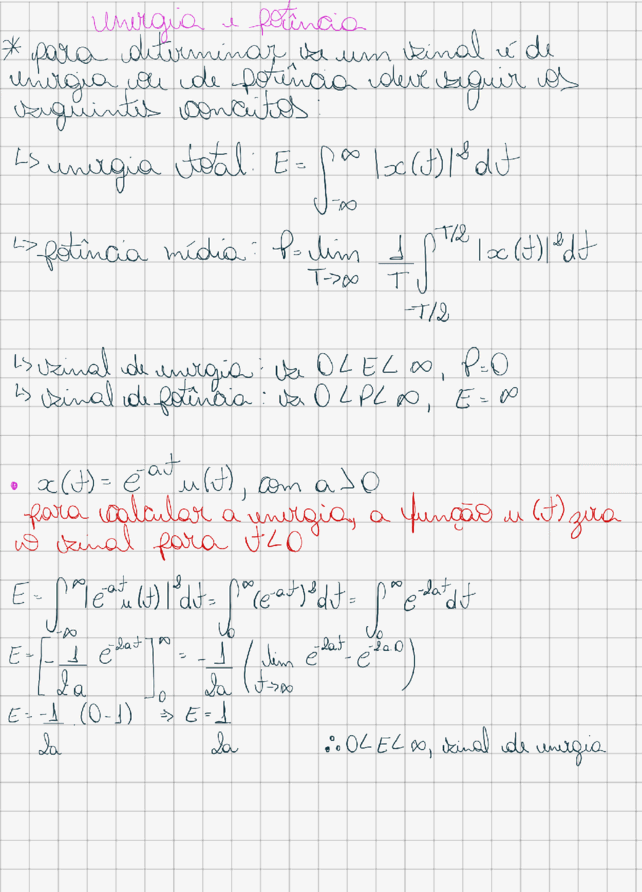 energia e potência
* para determinar se um sinal é de
energia ou de potência deve seguir os
seguintes conceitos:
↳ energia total: E = ∫_{-∞}^{∞} |x(t)|² dt
↳ potência média: P = lim_{T→∞} 1/T ∫_{-T/2}^{T/2} |x(t)|² dt
↳ sinal de energia: se 0 < E < ∞, P=0
↳ sinal de potência: se 0 < P < ∞, E = ∞
• x(t) = e^{-at} u(t), com a > 0
para calcular a energia, a função u(t) zera
o sinal para t < 0
E = ∫_{-∞}^{∞} |e^{-at} u(t)|² dt = ∫_{0}^{∞} (e^{-at})² dt = ∫_{0}^{∞} e^{-2at} dt
E = [-1/2a e^{-2at}]_{0}^{∞} = -1/2a (lim_{t→∞} e^{-2at} - e^{-2a0})
E = -1/2a (0-1) ⇒ E = 1/2a ∴ 0 < E < ∞, sinal de energia